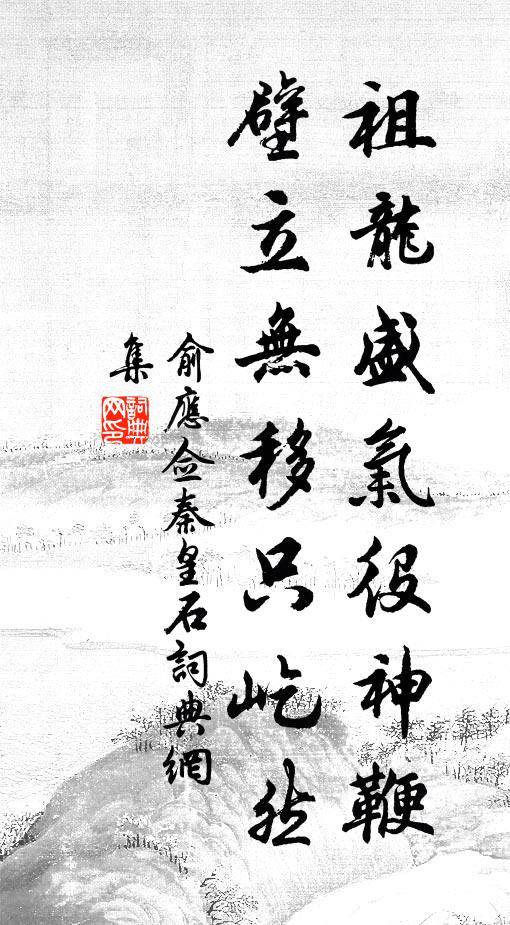 祖龍盛氣役神鞭
壁立無移只屹然
俞應僉秦皇石詞典網
集
詞典網印